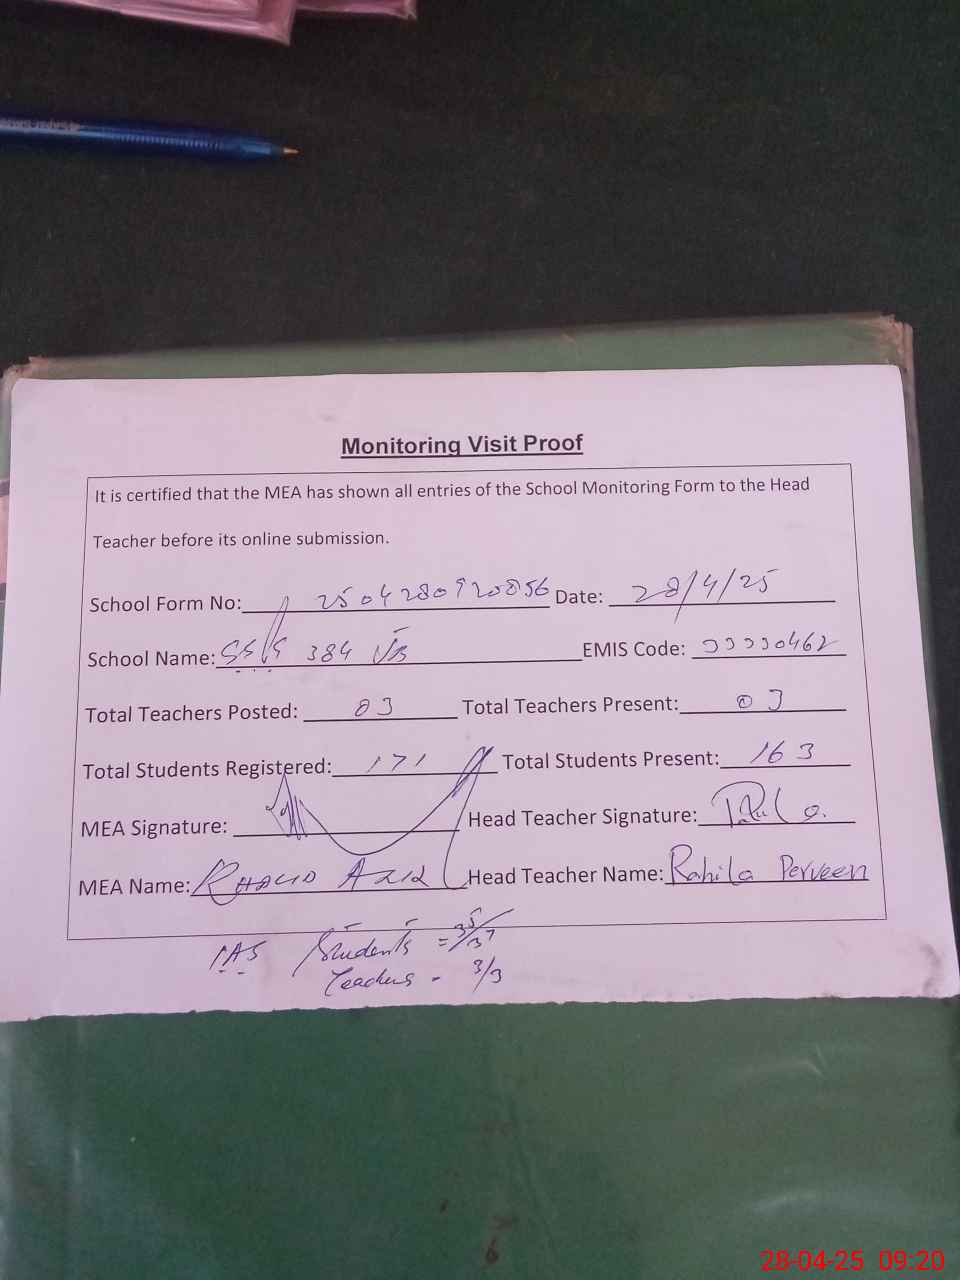 Monitoring Visit Proof
It is certified that the MEA has shown all entries of the School Monitoring Form to the Head
Teacher before its online submission.
School Form No: 2504280920856 Date: 28/4/25
School Name: 384 JB EMIS Code: 33330462
Total Teachers Posted: 03 Total Teachers Present: 03
Total Students Registered: 171 Total Students Present: 163
MEA Signature: Head Teacher Signature:
MEA Name: Khalid Aziz Head Teacher Name: Rahila Perveen
Students = 35/37
Teachers - 3/3
28-04-25 09:20